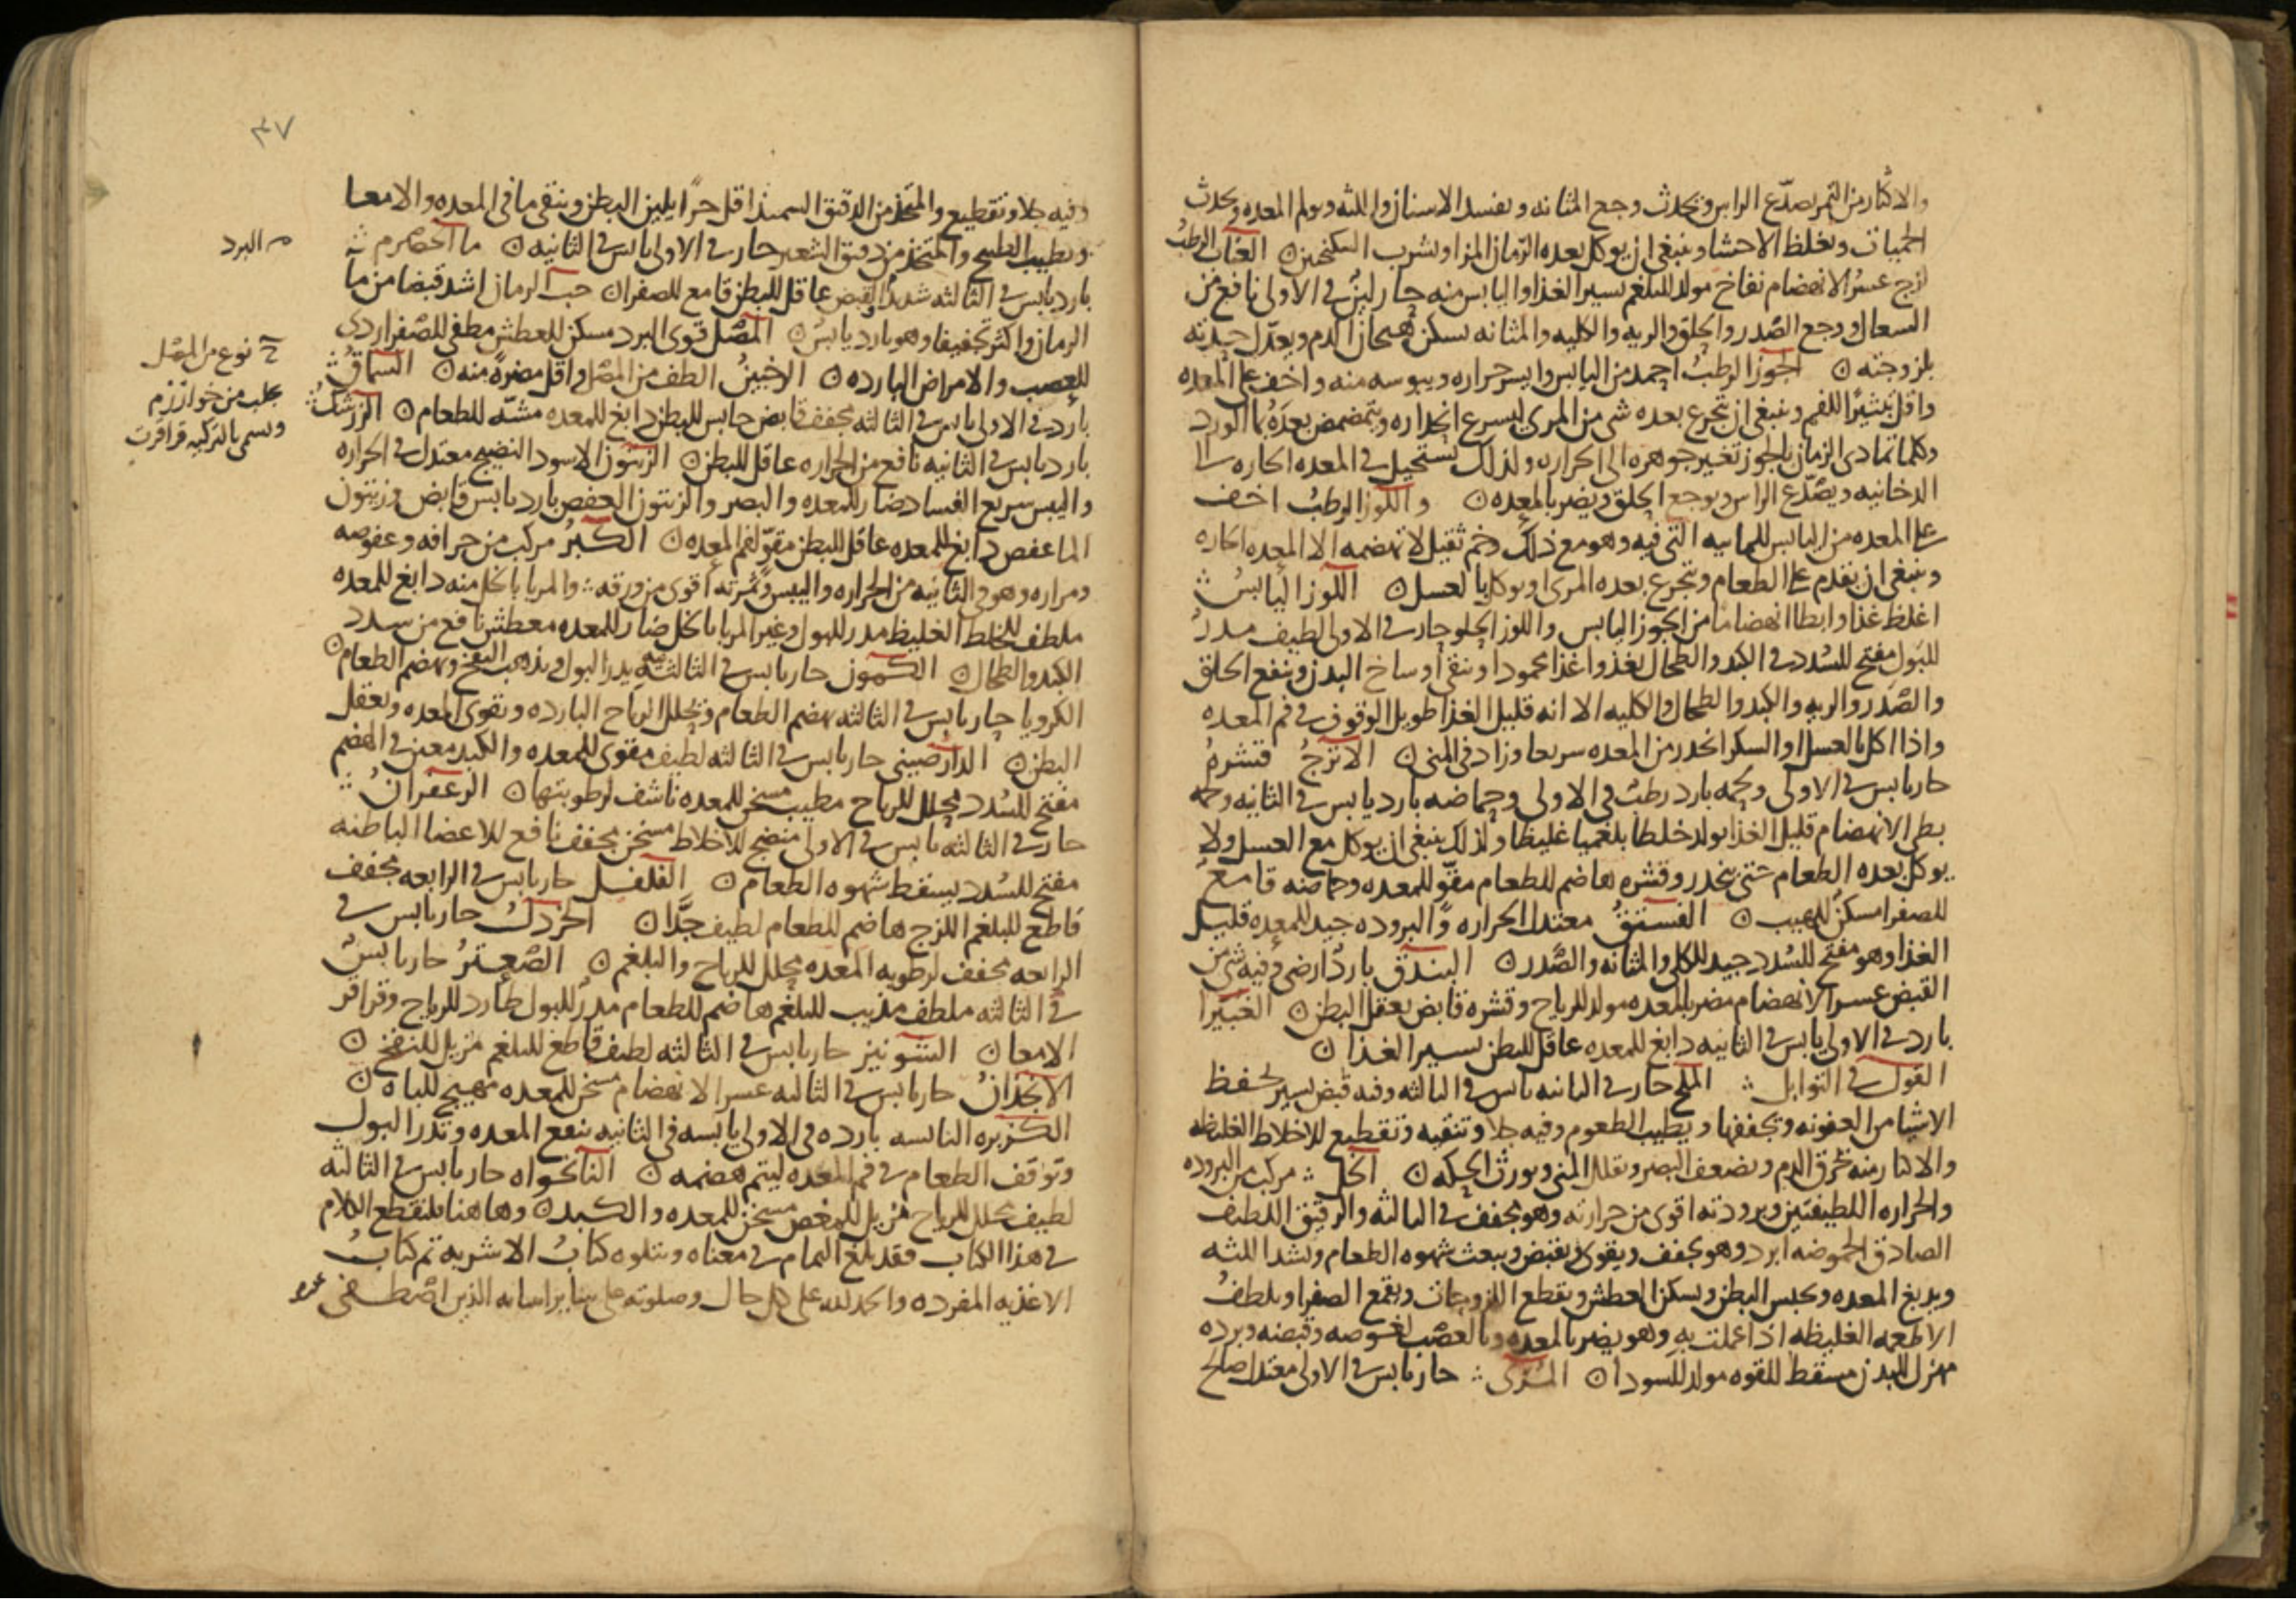 والاكثار من التمر يصدّع الراس ويحدث وجع المثانه ويفسد الاسنان واللثه ويولم المعده ويحدث
الحميات ويغلظ الاحشا وينبغي ان يوكل بعده الرّمان المز او يشرب السكنجبين ن العنّاب الرطبُ
لزج عسرُ الانهضام نفاخ مولد للبلغم يسير الغذا واليابس منه حار ليّن في الاولى نافع من
السعال ووجع الصّدر والحلق والريه والكليه والمثانه يسكن هيجان الدم ويعدّل حدته
بلزوجته ن الجوز الرطبُ احمد من اليابس وايسر حراره ويبوسه منه واخف على المعده
واقل تبثيرًا للفم وينبغي ان يتجرع بعده شي من المري ليسرع انحداره ويتمضمض بعدَهُ بما الورد
وكلما تمادى الزمان بالجوز تغير جوهره الى الحراره ولذلك يستحيل في المعده الحاره الى
الدخانيه ويصّدّع الراس ويوجع الحلق ويضر بالمعده ن واللوز الرطبُ اخف
على المعده من اليابس للمائيه التى فيه وهو مع ذلك وخم ثقيل لا تهضمه الا المعده الحاره
وينبغي ان يقدم على الطعام ويتجرع بعده المري او يوكل بالعسل ن اللوز اليابسُ
اغلظ غذا وابطا انهضاما من الجوز اليابس واللوز الحلو حار في الاولى لطيف مدرُ
للبول مفتح للسُدد في الكبد والطحال يغذوا غذا محمودا وينقي اوساخ البدن وينفع الحلق
والصّدر والريه والكبد والطحال والكليه الا انه قليل الغذا طويل الوقوف في فم المعده
واذا اكل بالعسل او السكر انحدر من المعده سريعا وزاد في المني ن الاترجُ قشرهُ
حار يابس في الاولى ولحمه بارد رطب في الاولى وحماضه بارد يابس في الثانيه ولحمه
بطي الانهضام قليل الغذا يولد خلطًا بلغميا غليظا ولذلك ينبغي ان يوكل مع العسل ولا
يوكل بعده الطعام حتى ينحدر وقشره هاضم للطعام مقوّ للمعده وحماضه قامع
للصفرا مسكن للهيب ن الفستقُ معتدل الحراره والبروده جيد للمعده قليل
الغذا وهو مفتح للسُدد جيد للكلى والمثانه والصّدر ن البندق بارد ارضي وفيه شي من
القبض عسر الانهضام مضر بالمعده مولد للرياح وقشره قابض يعقل البطن ن الغبيرا
بارد في الاولى يابس في الثانيه دابغ للمعده عاقل للبطن يسير الغذا ن
القول في التوابل الملح حار في الثانيه يابس في الثالثه وفيه قبض يسير يحفظ
الاشيا من العفونه ويجففها ويطيب الطعوم وفيه جلا وتنقيه وتقطيع للاخلاط الغليظه
والاكثار منه يحرق الدم ويضعف البصر ويقلل المني ويورث الحكه ن الخل مركب من البروده
والحراره اللطيفتين وبرودته اقوى من حرارته وهو يجفف في الثالثه والرقيق اللطيف
الصادق الحموضه ابرد وهو يجفف ويقوى ويقبض ويبعث شهوه الطعام ويشد اللثه
ويدبغ المعده ويحبس البطن ويسكن العطش ويقطع اللزوجات ويقمع الصفرا ويلطفُ
الاطعمه الغليظه اذا عملت به وهو يضر بالمعده وبالعصب لغوصه وقبضه وبرده
مهزل للبدن مسقط للقوه مولد للسودا ن المُرّى حار يابس في الاولى معتدل صالح
٣٧
وفيه جلا وتقطيع والمتخذ من الدقيق السميذ اقل حرًا يلين البطن وينقي ما في المعده والامعا
ويطيب الطبيخ والمتخذ من دقيق الشعير حار في الاولى يابس في الثانيه ن ما الحصرم
بارد يابس في الثالثه شديد القبض عاقل للبطن قامع للصفرا ن حب الرمان اشد قبضا من ما
الرمان واكثر تجفيفا وهو بارد يابسُ ن المصْل قوى البرد مسكن للعطش مطفي للصّفرا ردي
للعصب والامراض البارده ن الرخبينُ الطف من المصْل واقل مضره منه ن السماقُ
بارد في الاولى يابس في الثالثه مجفف قابض حابس للبطن دابغ للمعده مشهّ للطعام ن الزرشكُ
بارد يابس في الثانيه نافع من الحراره عاقل للبطن ن الزيتون الاسود النضيج معتدل في الحراره
واليبس سريع الفساد ضار للمعده والبصر والزيتون العفص بارد يابس قابض وزيتون
الما عفص دابغ للمعده عاقل للبطن مقوّ لفم المعده ن الكبَرُ مركب من حرافه وعفوصه
ومراره وهو في الثانيه من الحراره واليبس وثمرته اقوى من ورقه والمربا بالخل منه دابغ للمعده
ملطف للخلط الغليظ مدر للبول وغير المربا بالخل ضار للمعده معطش نافع من سدد
الكبد والطحال ن الكمون حار يابس في الثالثه يدر البول ويذهب النفخ ويهضم الطعام ن
الكرويا حار يابس في الثالثه يهضم الطعام ويحلل الرياح البارده ويقوى المعده ويعقل
البطن ن الدارصيني حار يابس في الثالثه لطيف مقوى للمعده والكبد معين في الهضم
مفتح للسُدد محلل للرياح مطيب مسخن للمعده ناشف لرطوبتها ن الزعفرانُ
حار في الثالثه يابس في الاولى منضج للاخلاط مسخن مجفف نافع للاعضا الباطنه
مفتح للسُدد يسقط شهوه الطعام ن الفلفل حار يابس في الرابعه مجفف
قاطع للبلغم اللزج هاضم للطعام لطيف جدًّا ن الخردلُ حار يابس في
الرابعه مجفف لرطوبه المعده محلل للرياح والبلغم ن الصّعترُ حار يابس
في الثالثه ملطف مذيب للبلغم هاضم للطعام مدرّ للبول طارد للرياح وقراقر
الامعا ن الشونيز حار يابس في الثالثه لطيف قاطع للبلغم مزيل للنفخ ن
الانجذانُ حار يابس في الثالثه عسر الانهضام مسخن للمعده مهيج للباه ن
الكزبره اليابسه بارده في الاولى يابسه في الثانيه تنفع المعده وتدر البول
وتوقف الطعام في فم المعده ليتم هضمه ن النانخواه حار يابس في الثالثه
لطيف محلل للرياح مزيل للمغص مسخن للمعده والكبد ن وها هنا فلنقطع الكلام
في هذا الكتاب فقد بلغ التمام في معناه ويتلوه كتابُ الاشربه تم كتابُ
الاغذيه المفرده والحمد لله على كل حال وصلوته على الذين اصطفى
البرد
نوع من المصل
يجلب من خوارزم
ويسمى بالتركيه قراقرت